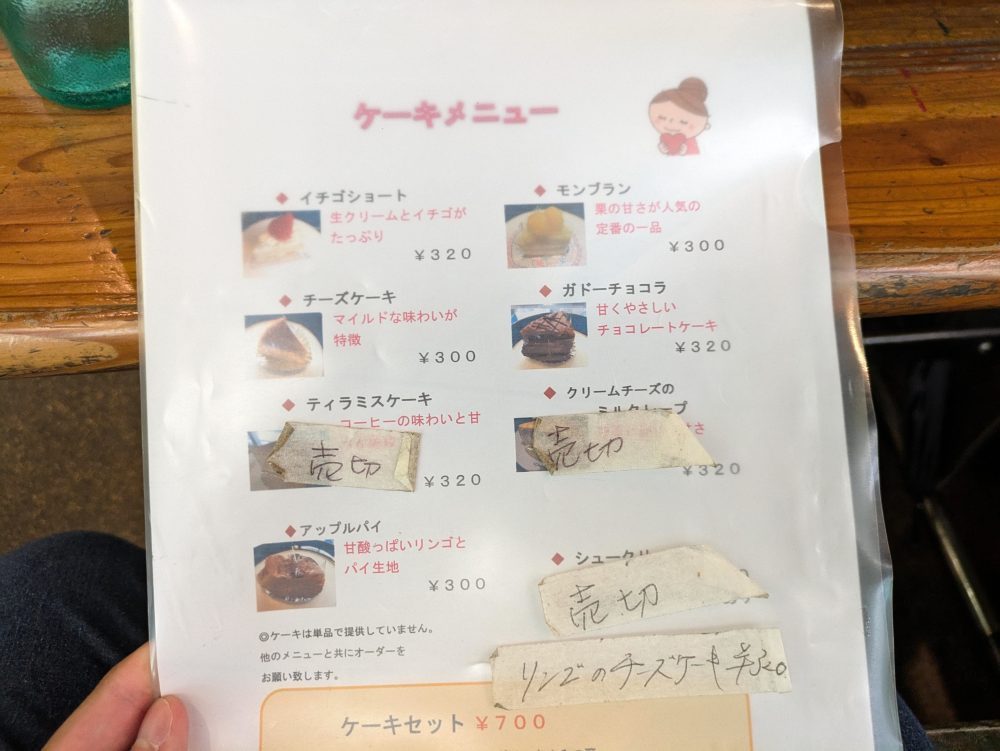 ケーキメニュー
◆ イチゴショート
生クリームとイチゴが
たっぷり
¥320
◆ モンブラン
栗の甘さが人気の
定番の一品
¥300
◆ チーズケーキ
マイルドな味わいが
特徴
¥300
◆ ガトーチョコラ
甘くやさしい
チョコレートケーキ
¥320
◆ ティラミスケーキ
コーヒーの味わいと甘
売切
¥320
◆ クリームチーズの
ミルクレープ
売切
¥320
◆ アップルパイ
甘酸っぱいリンゴと
パイ生地
¥300
◆ シュークリ
売切
リンゴのチーズケーキ ¥320
◎ケーキは単品で提供していません。
他のメニューと共にオーダーを
お願い致します。
ケーキセット ¥700